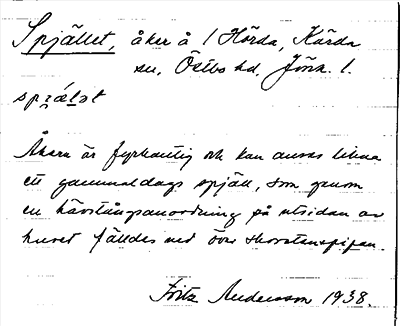 Spjället, åker å 1 Hörda, Kärda
sn, Östbo hd, Jönk. l.
spjälət
Åkern är fyrkantig och kan anses likna
ett gammaldags spjäll, som genom
en hävstångsanordning på utsidan av
huset fälldes ned över skorstenspipan.
Fritz Andersson 1938.